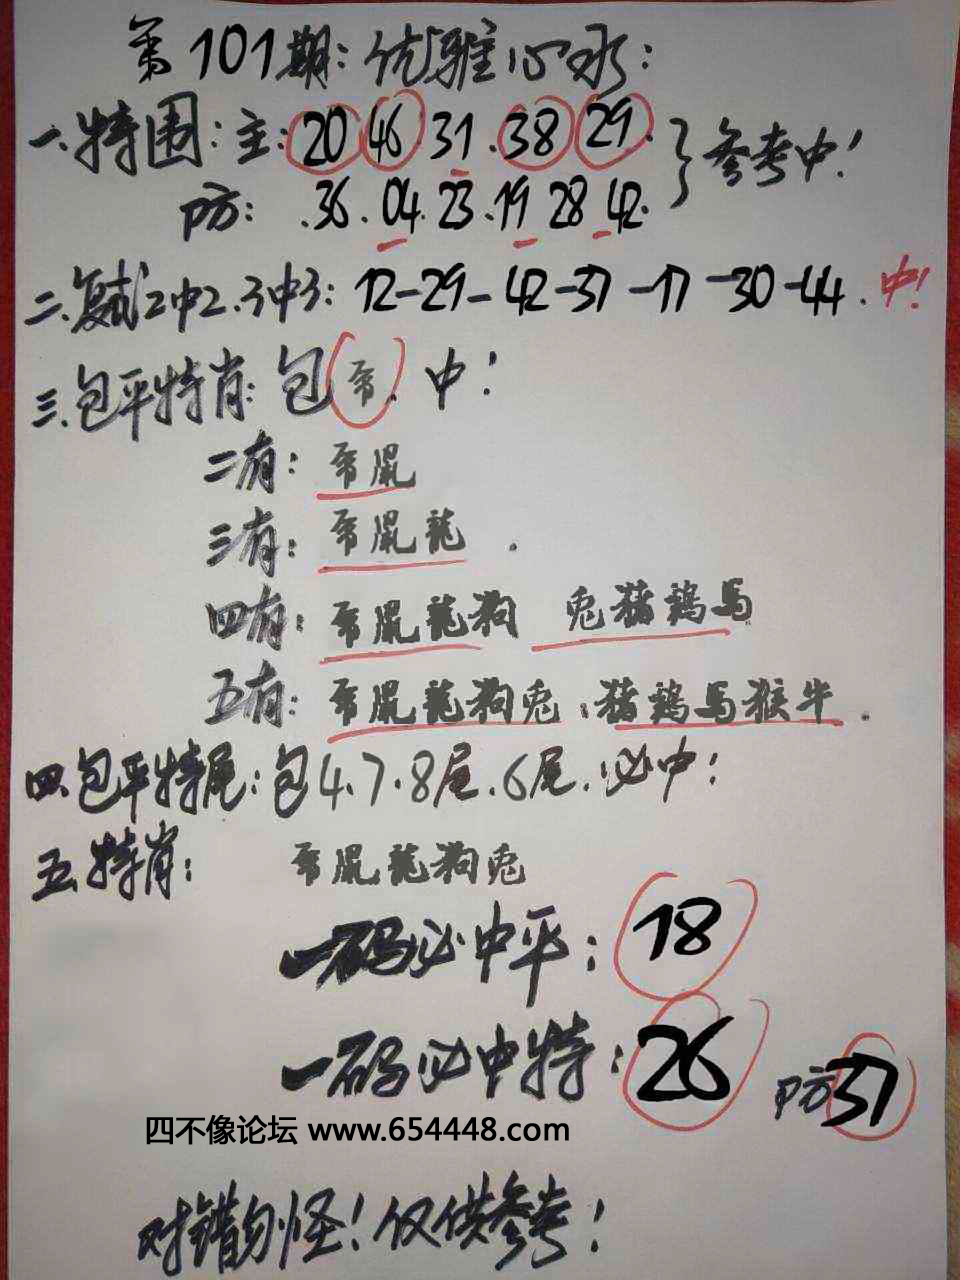 第101期:优雅心水:
一.特围:主:20 46 31.38 29.
}参考中!
防: .36.04.23.19 28 42.
二.复式2中2.3中3: 12-29-42-37-17-30-44.中!
三.包平特肖:包虎.中!
二有:虎鼠
三有:虎鼠龍.
四有:虎鼠龍狗 兔猪鷄馬
五有:虎鼠龍狗兔.猪鷄馬猴牛.
四.包平特尾:包4.7.8尾.6尾.必中!
五.特肖: 虎鼠龍狗兔
一码必中平:18
一码必中特:26 防37
四不像论坛 www.654448.com
对错勿怪!仅供参考!